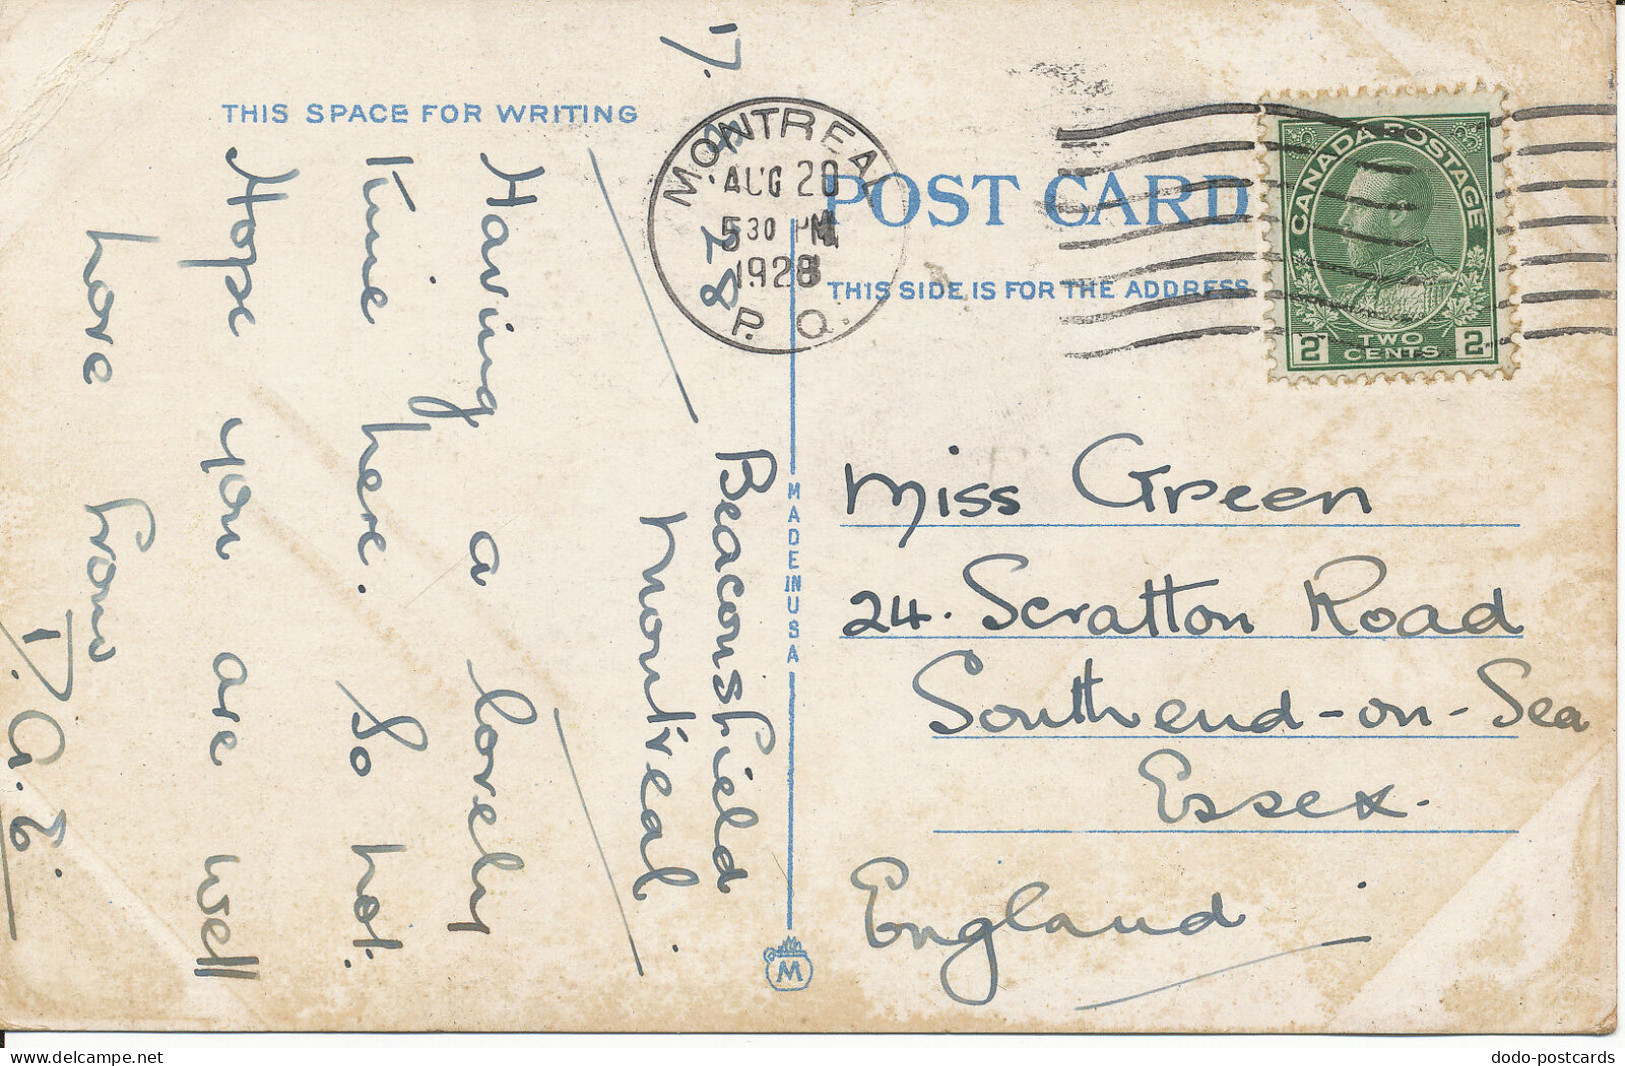 THIS SPACE FOR WRITING
MONTREAL
AUG 20
5 30 PM
1928
P. Q.
POST CARD
THIS SIDE IS FOR THE ADDRESS
CANADA POSTAGE
2 TWO CENTS 2
Beaconsfield
Montreal
Having a lovely
time here. So hot.
Hope you are well
love from
MADE IN USA
M
Miss Green
24. Scratton Road
Southend-on-Sea
Essex.
England
delcampe.net
dodo-postcards